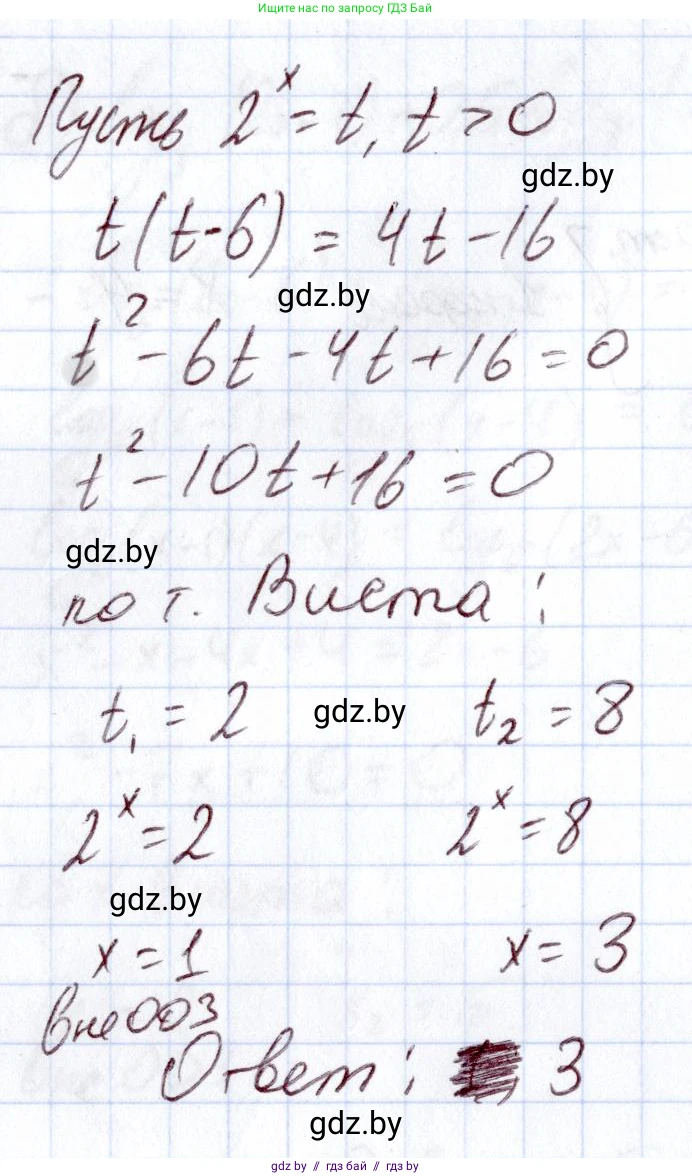 Ищите нас по запросу ГДЗ Бай
Пусть 2^x = t, t > 0
gdz.by
t(t-6) = 4t-16
gdz.by
t^2 - 6t - 4t + 16 = 0
t^2 - 10t + 16 = 0
gdz.by
по т. Виета:
t₁ = 2 gdz.by t₂ = 8
2^x = 2 2^x = 8
gdz.by
x = 1 x = 3
вне ОДЗ
Ответ: 3
gdz.by
gdz.by // гдз бай // гдз by